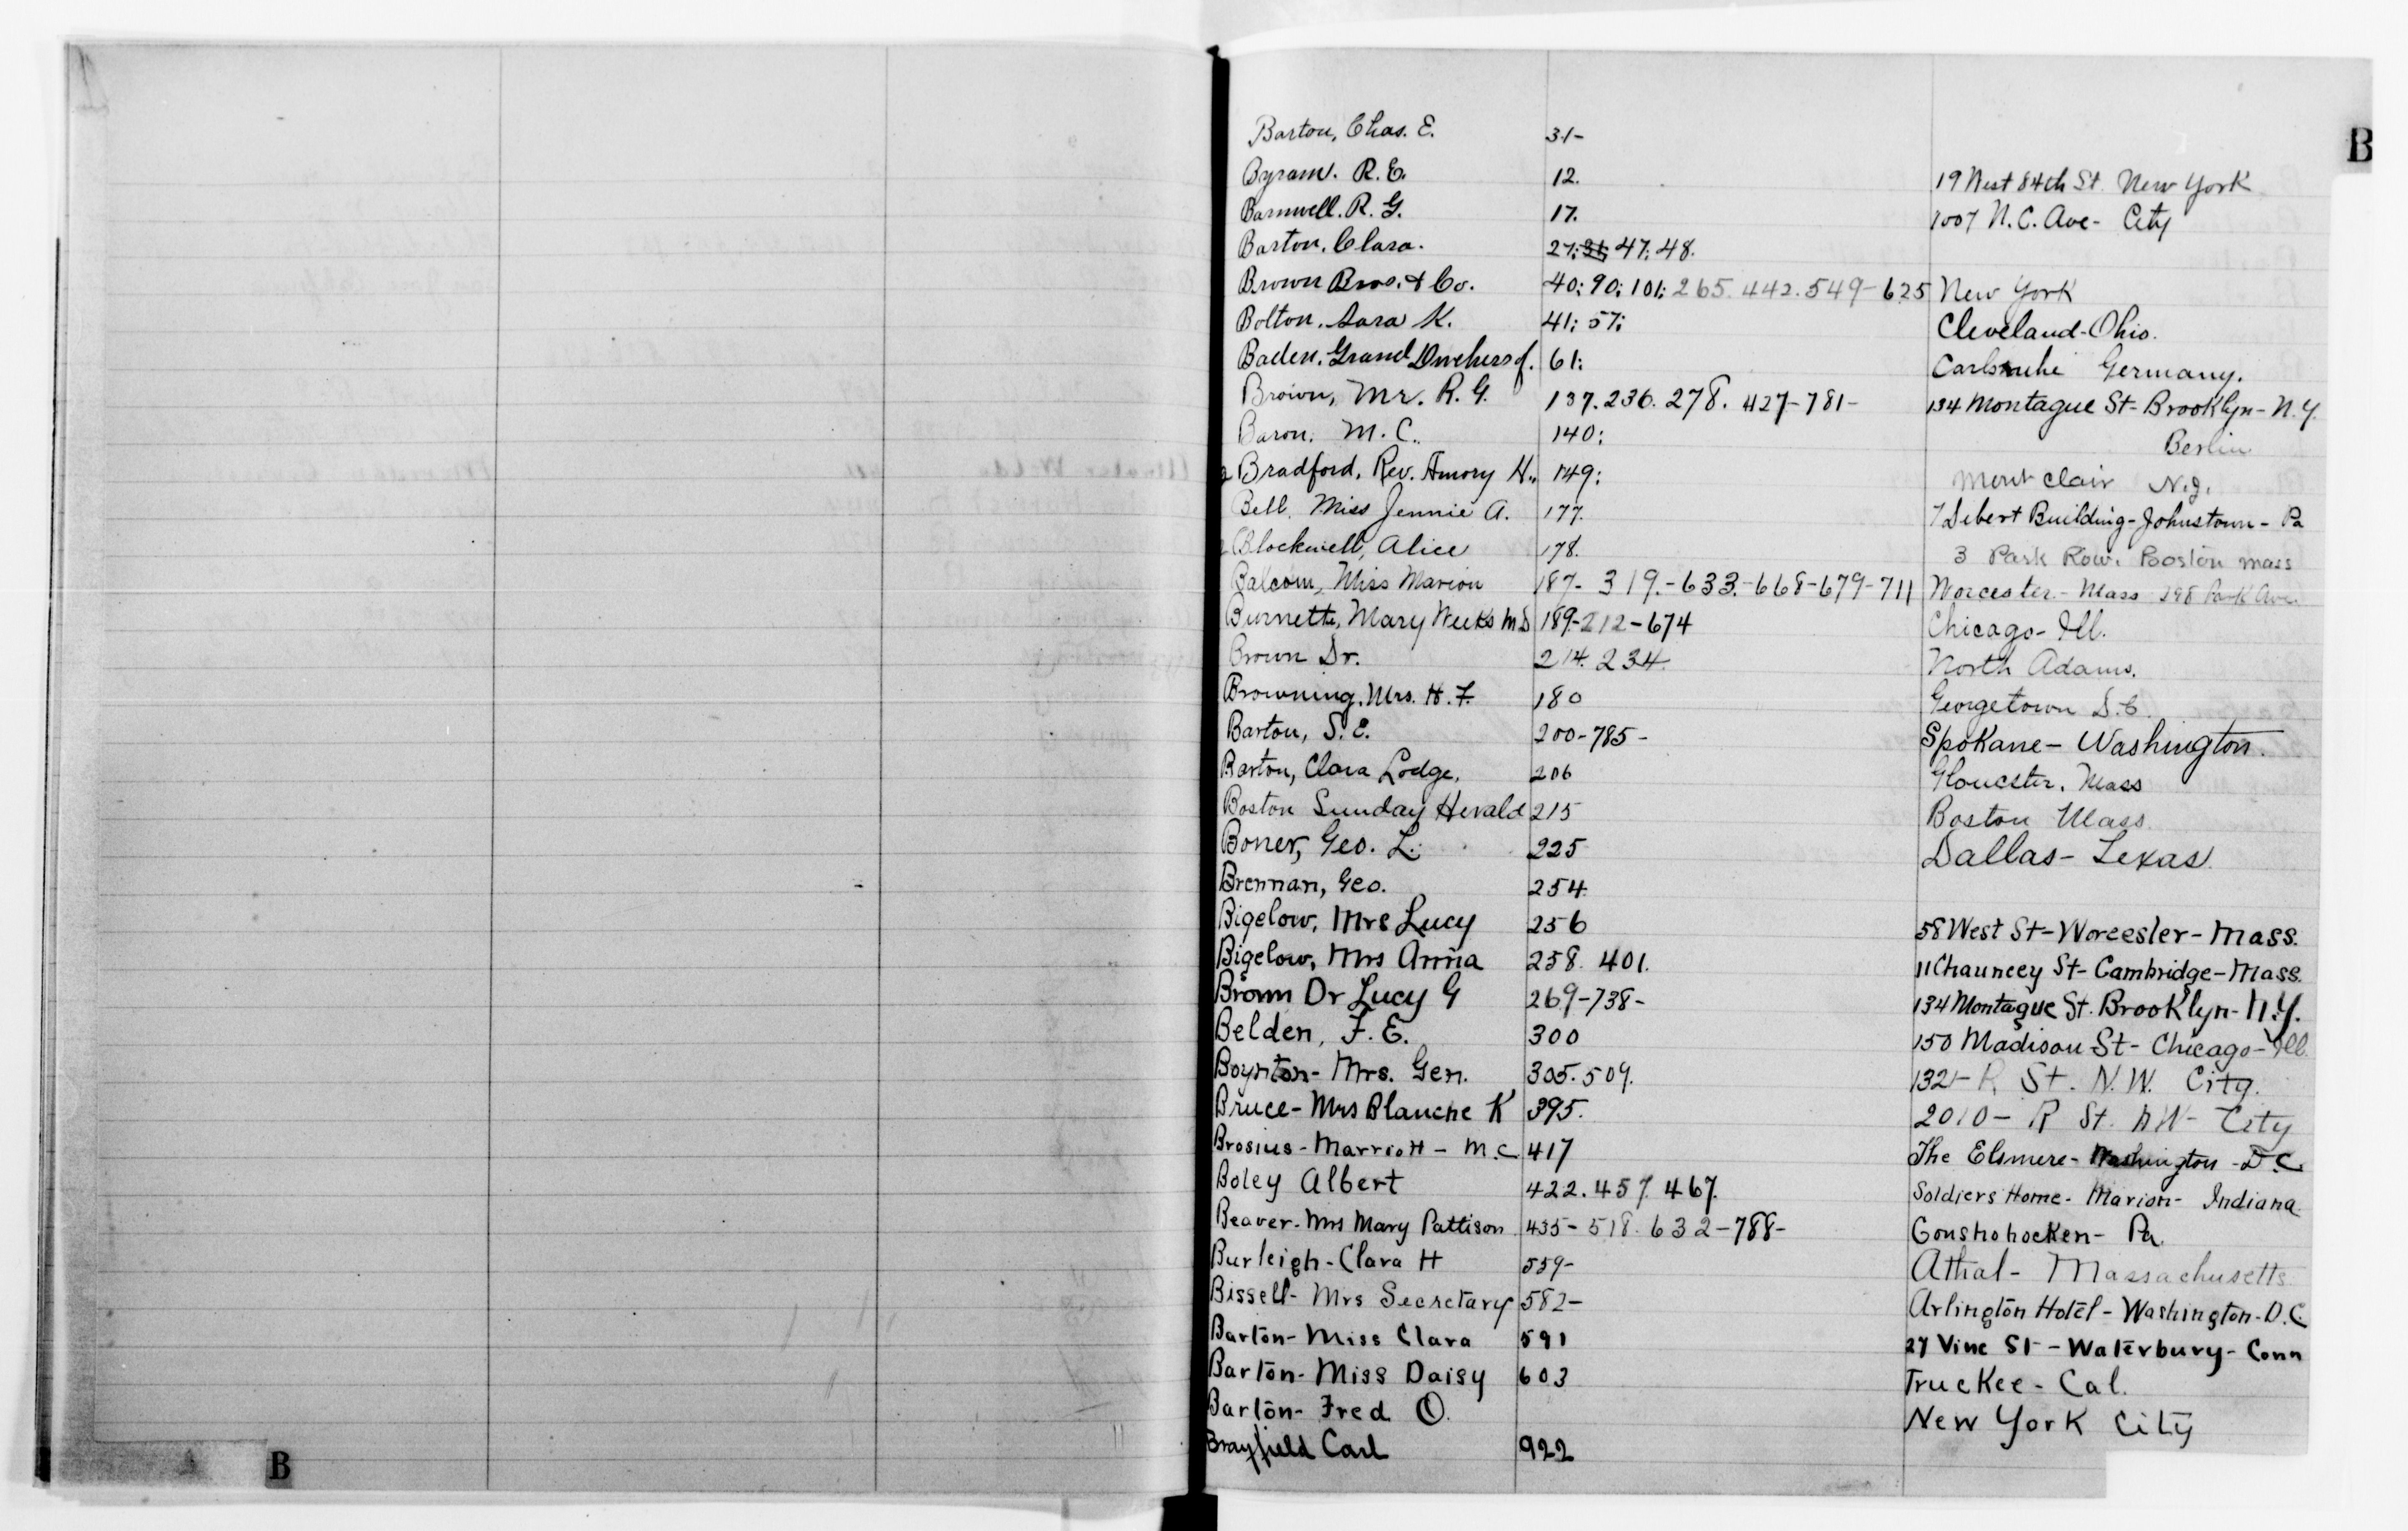 B
Barton, Chas. E. 31-
Byram. R. E. 12. 19 West 84th St. New York
Barnwell. R. G. 17. 1007 N. C. Ave- City
Barton. Clara. 27; 31; 47; 48.
Brown Bros. & Co. 40; 90; 101; 265. 442. 549- 625 New York
Bolton. Sara K. 41; 57; Cleveland-Ohio.
Baden. Grand Duchess of. 61; Carlsruhe Germany.
Brown, Mr. R. G. 137. 236. 278. 427-781- 134 Montague St- Brooklyn- N.Y.
Baron. M. C. 140; Berlin
Bradford, Rev. Amory H. 149; Mont clair N.J.
Bell. Miss Jennie A. 177. 7 Libert Building-Johnstown- Pa
Blackwell, Alice 178. 3 Park Row. Boston mass
Balcom, Miss Marion 187- 319.-633.-668-679-711 Worcester- Mass 298 Park Ave.
Burnette, Mary Weeks M D 189-212-674 Chicago- Ill.
Brown Dr. 214. 234. North Adams.
Browning. Mrs. H. F. 180 Georgetown D.C.
Barton, S. E. 200-785- Spokane- Washington.
Barton, Clara Lodge. 206 Gloucster. Mass
Boston Sunday Herald 215 Boston Mass.
Boner, Geo. L. 225 Dallas- Texas.
Brennan, Geo. 254.
Bigelow, Mrs Lucy 256 58 West St-Worcester-Mass.
Bigelow, Mrs Anna 258. 401. 11 Chauncey St- Cambridge-Mass.
Brown Dr Lucy G 269-738- 134 Montague St. Brooklyn- N.Y.
Belden, F. E. 300 150 Madison St- Chicago- Ill.
Boynton- Mrs. Gen. 305. 509. 1321- R St. N.W. City.
Bruce- Mrs Blanche K 395. 2010- R St. NW- City
Brosius- Marriott- M.C 417 The Elsmere- Washington -D.C.
Boley Albert 422. 457. 467. Soldiers Home- Marion- Indiana.
Beaver- Mrs Mary Pattison 435- 518. 632-788- Conshohocken- Pa.
Burleigh-Clara H 559- Athal- Massachusetts
Bissell- Mrs Secretary 582- Arlington Hotel- Washington-D.C.
Barton- Miss Clara 591 27 Vine St- Waterbury- Conn
Barton- Miss Daisy 603 Truckee- Cal.
Barton- Fred O. New York City
Brayfield Carl 922
B